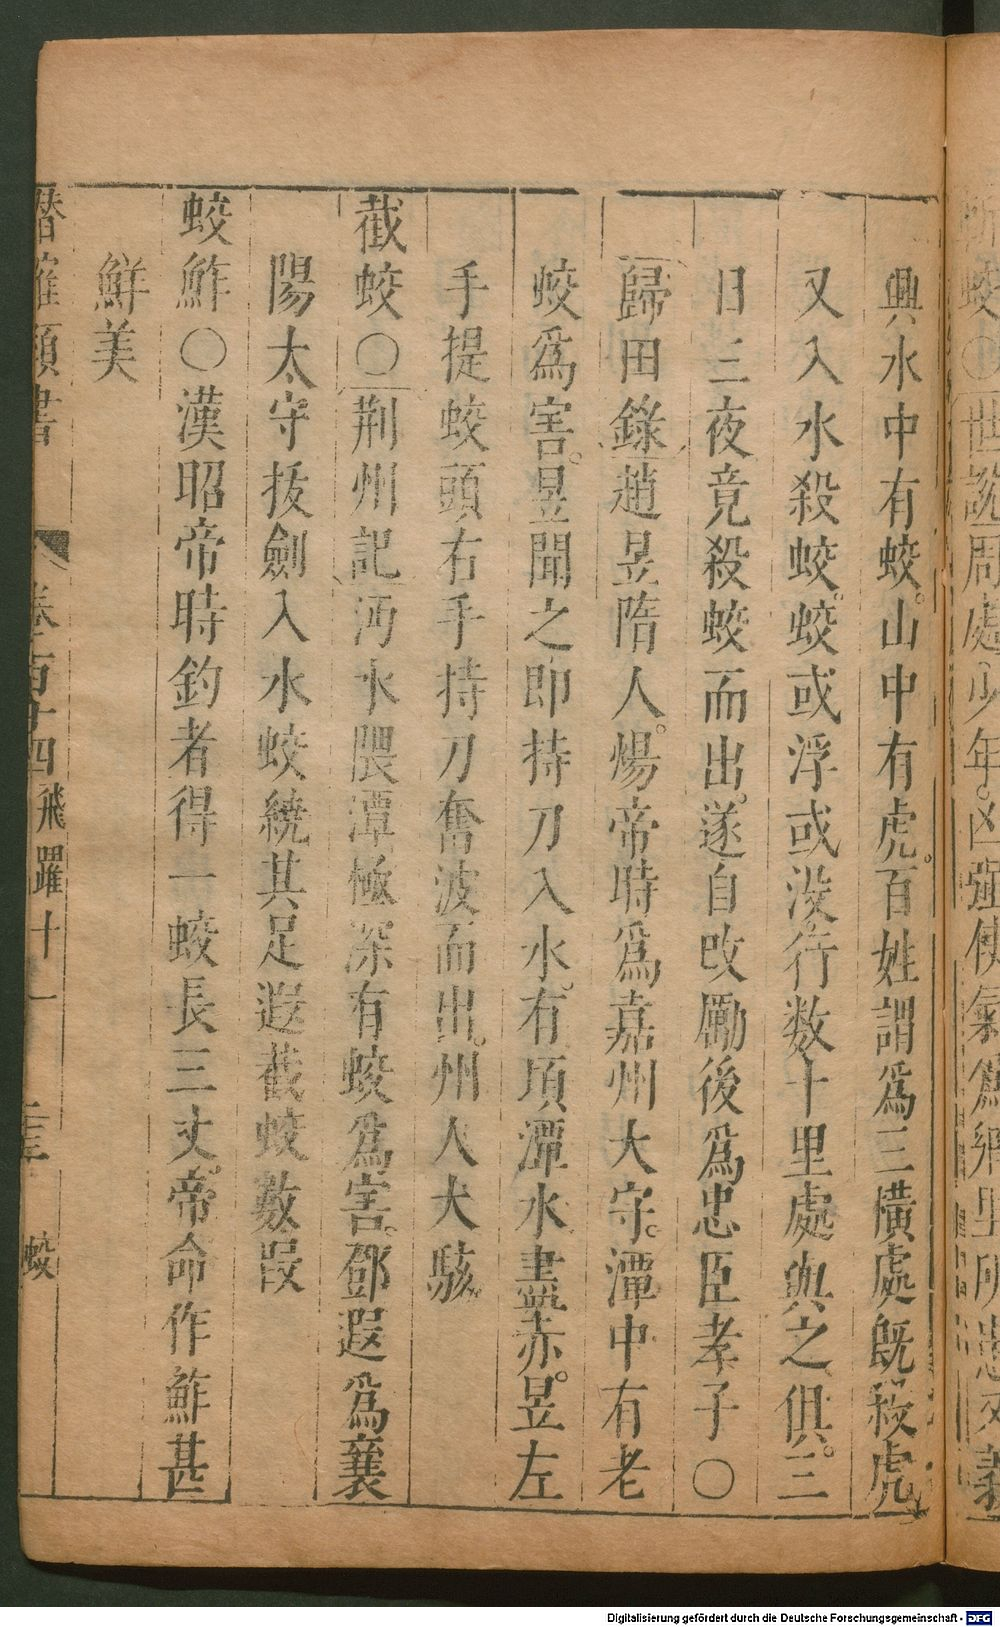 斬蛟○世說周處少年凶彊俠氣爲鄉里所患又義
興水中有蛟山中有虎百姓謂爲三橫處旣殺虎
又入水殺蛟蛟或浮或没行数十里處與之俱三
日三夜竟殺蛟而出遂自改勵後爲忠臣孝子○
歸田錄趙昱隋人煬帝時爲嘉州大守潭中有老
蛟爲害昱聞之即持刀入水有頃潭水盡赤昱左
手提蛟頭右手持刀奮波而出州人大駭
截蛟○荆州記沔水隈潭極深有蛟爲害鄧遐爲襄
陽太守拔劍入水蛟繞其足遐截蛟数段
蛟鮓○漢昭帝時釣者得一蛟長三丈帝命作鮓甚
鮮美
潛確類書 卷百十四 飛躍十一 三 蛟
Digitalisierung gefördert durch die Deutsche Forschungsgemeinschaft - DFG